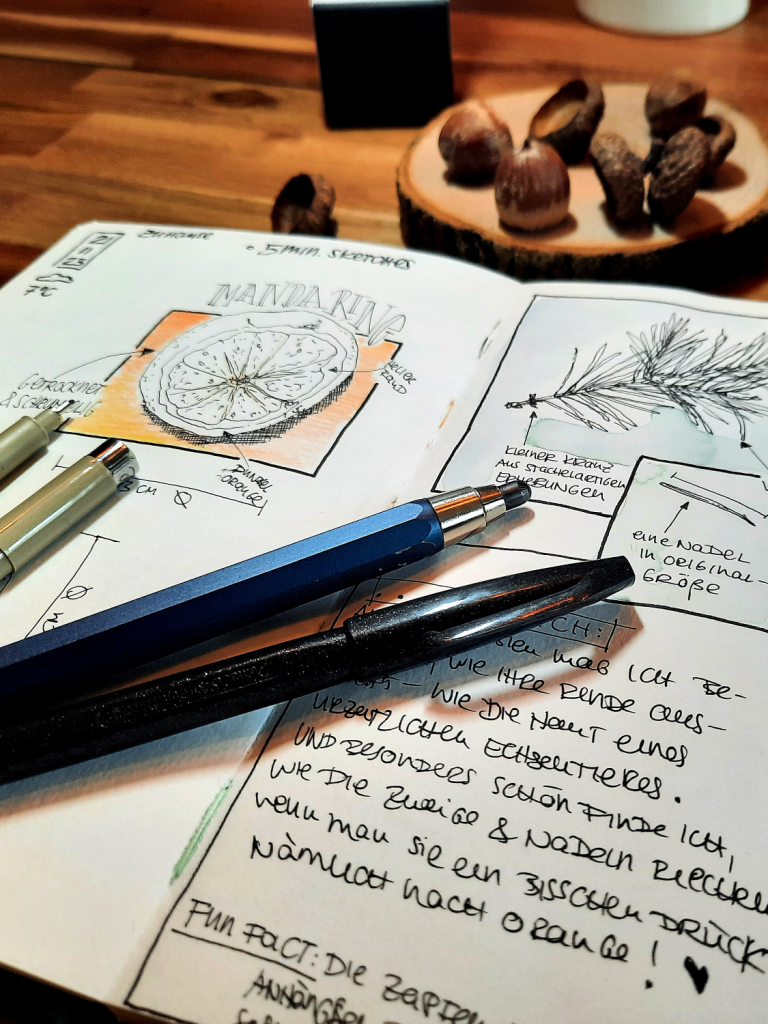 ZUHAUSE
• 5 MIN. SKETCHES
7°C
MANDARINE
GETROCKNET
&
HELLER
RAND
DUNKEL
ORANGE
CM Ø
Ø
CM
KLEINER KRANZ
AUS STACHELARTIGEN
ERHEBUNGEN
EINE NADEL
IN ORIGINAL-
GRÖßE
CH:
MAG ICH BE-
WIE IHRE RINDE AUS-
— WIE DIE HAUT EINES
URZEITLICHEN ECHSENTIERES.
UND BESONDERS SCHÖN FINDE ICH,
WIE DIE ZWEIGE & NADELN RIECHEN
WENN MAN SIE EIN BISSCHEN DRÜCK
NÄMLICH NACH ORANGE! ♥
FUN FACT: DIE ZAPFEN